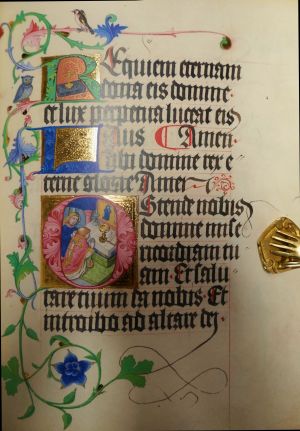 Requiem eternam
dona eis domine
et lux perpetua luceat eis
Laus Amen.
tibi domine rex e
terne glorie Amen
Ostende nobis
domine mise
ricordiam tu
am. Et salu
tare tuum da nobis. Et
introibo ad altare dei